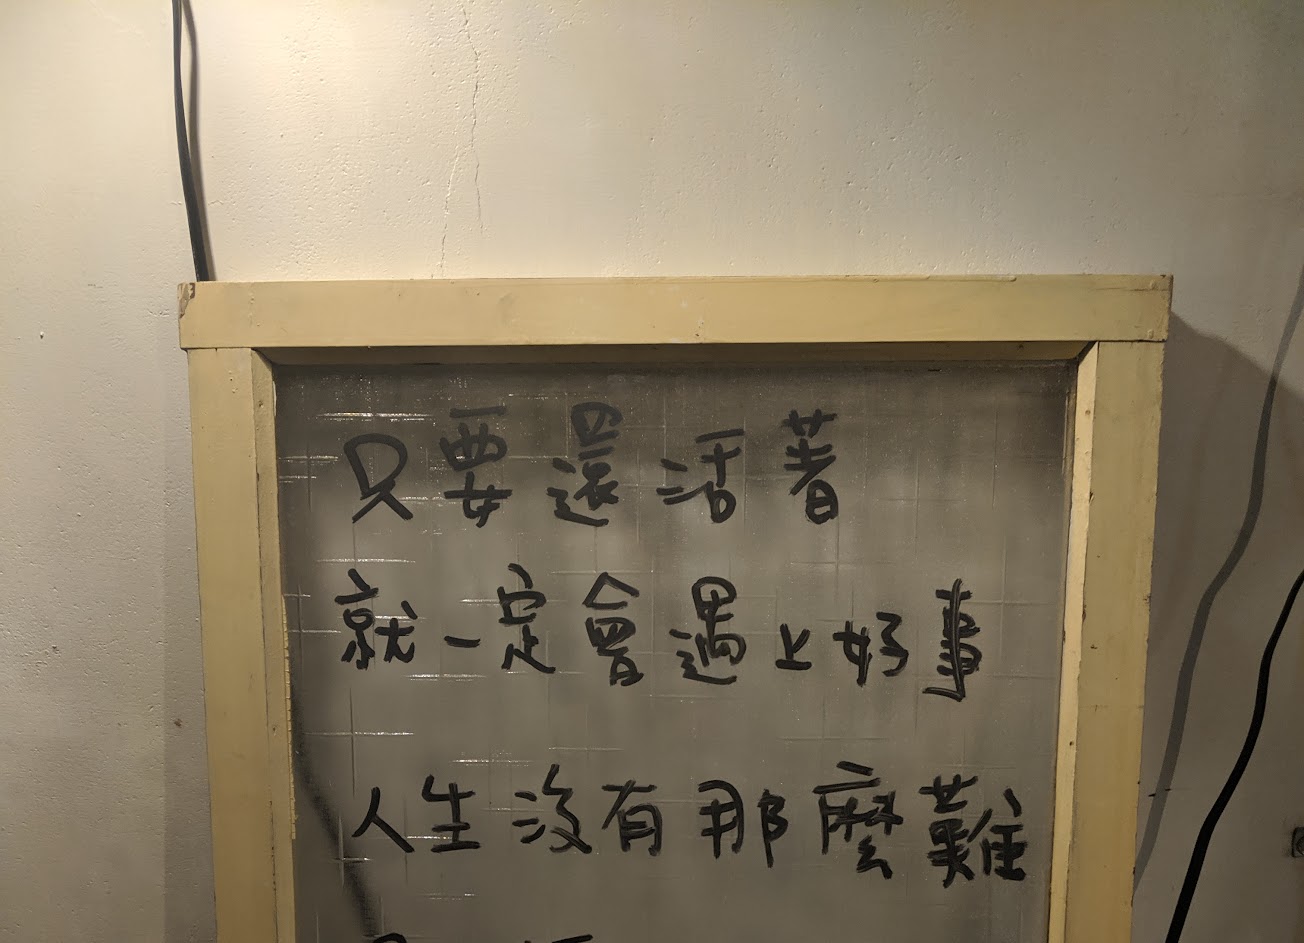 只要還活著
就一定會遇上好事
人生沒有那麼難